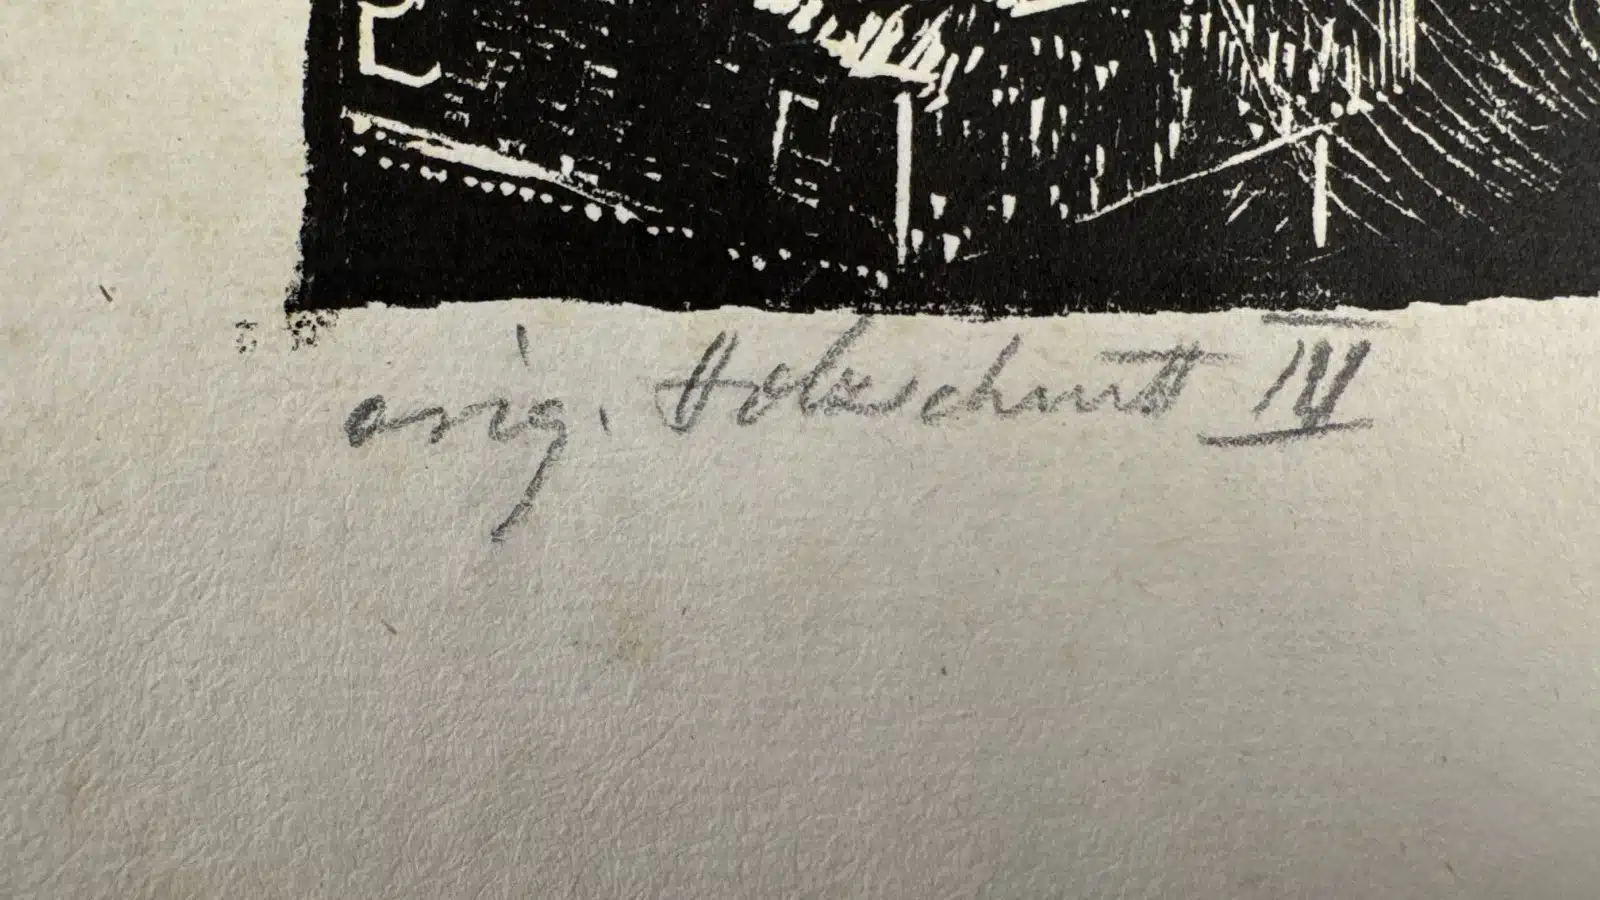 orig. Holzschnitt IV